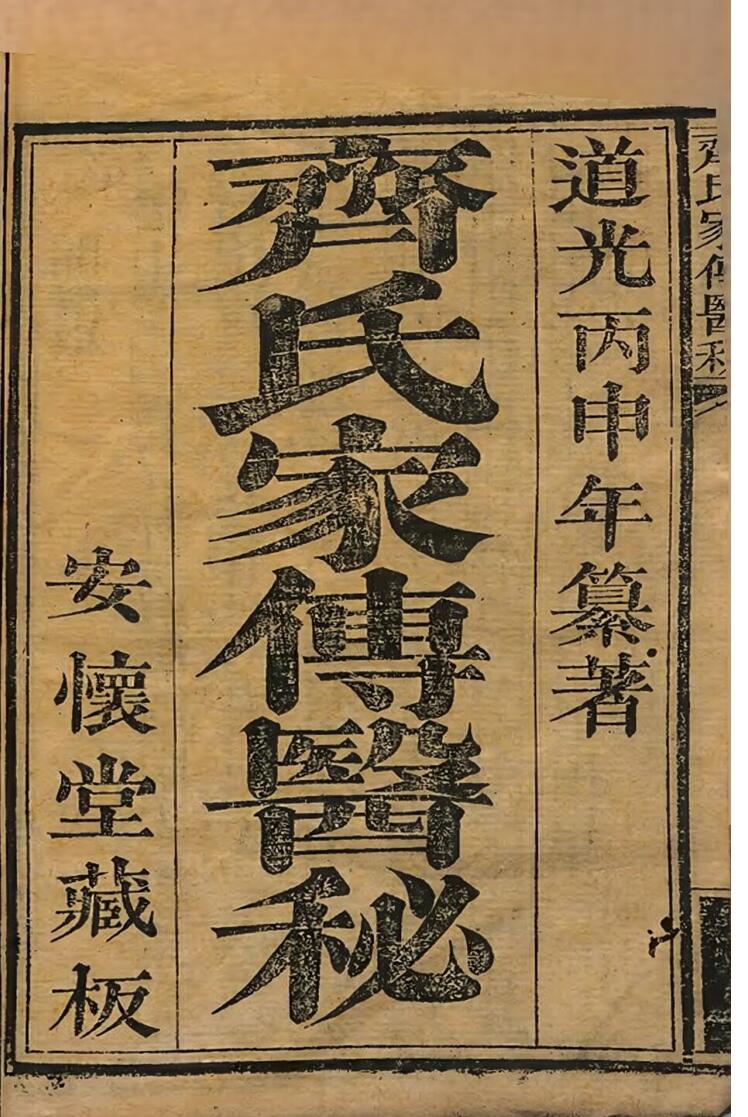 道光丙申年纂著
齊氏家傳醫秘
安懷堂藏板
齊氏家傳醫秘